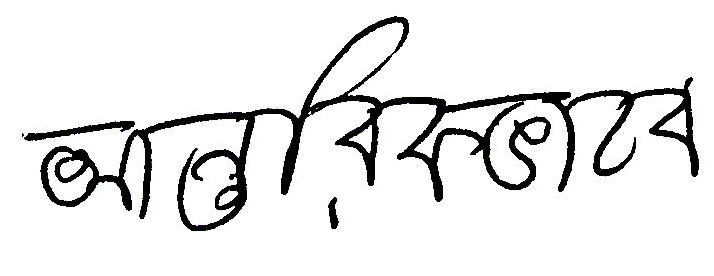 আন্তরিকভাবে